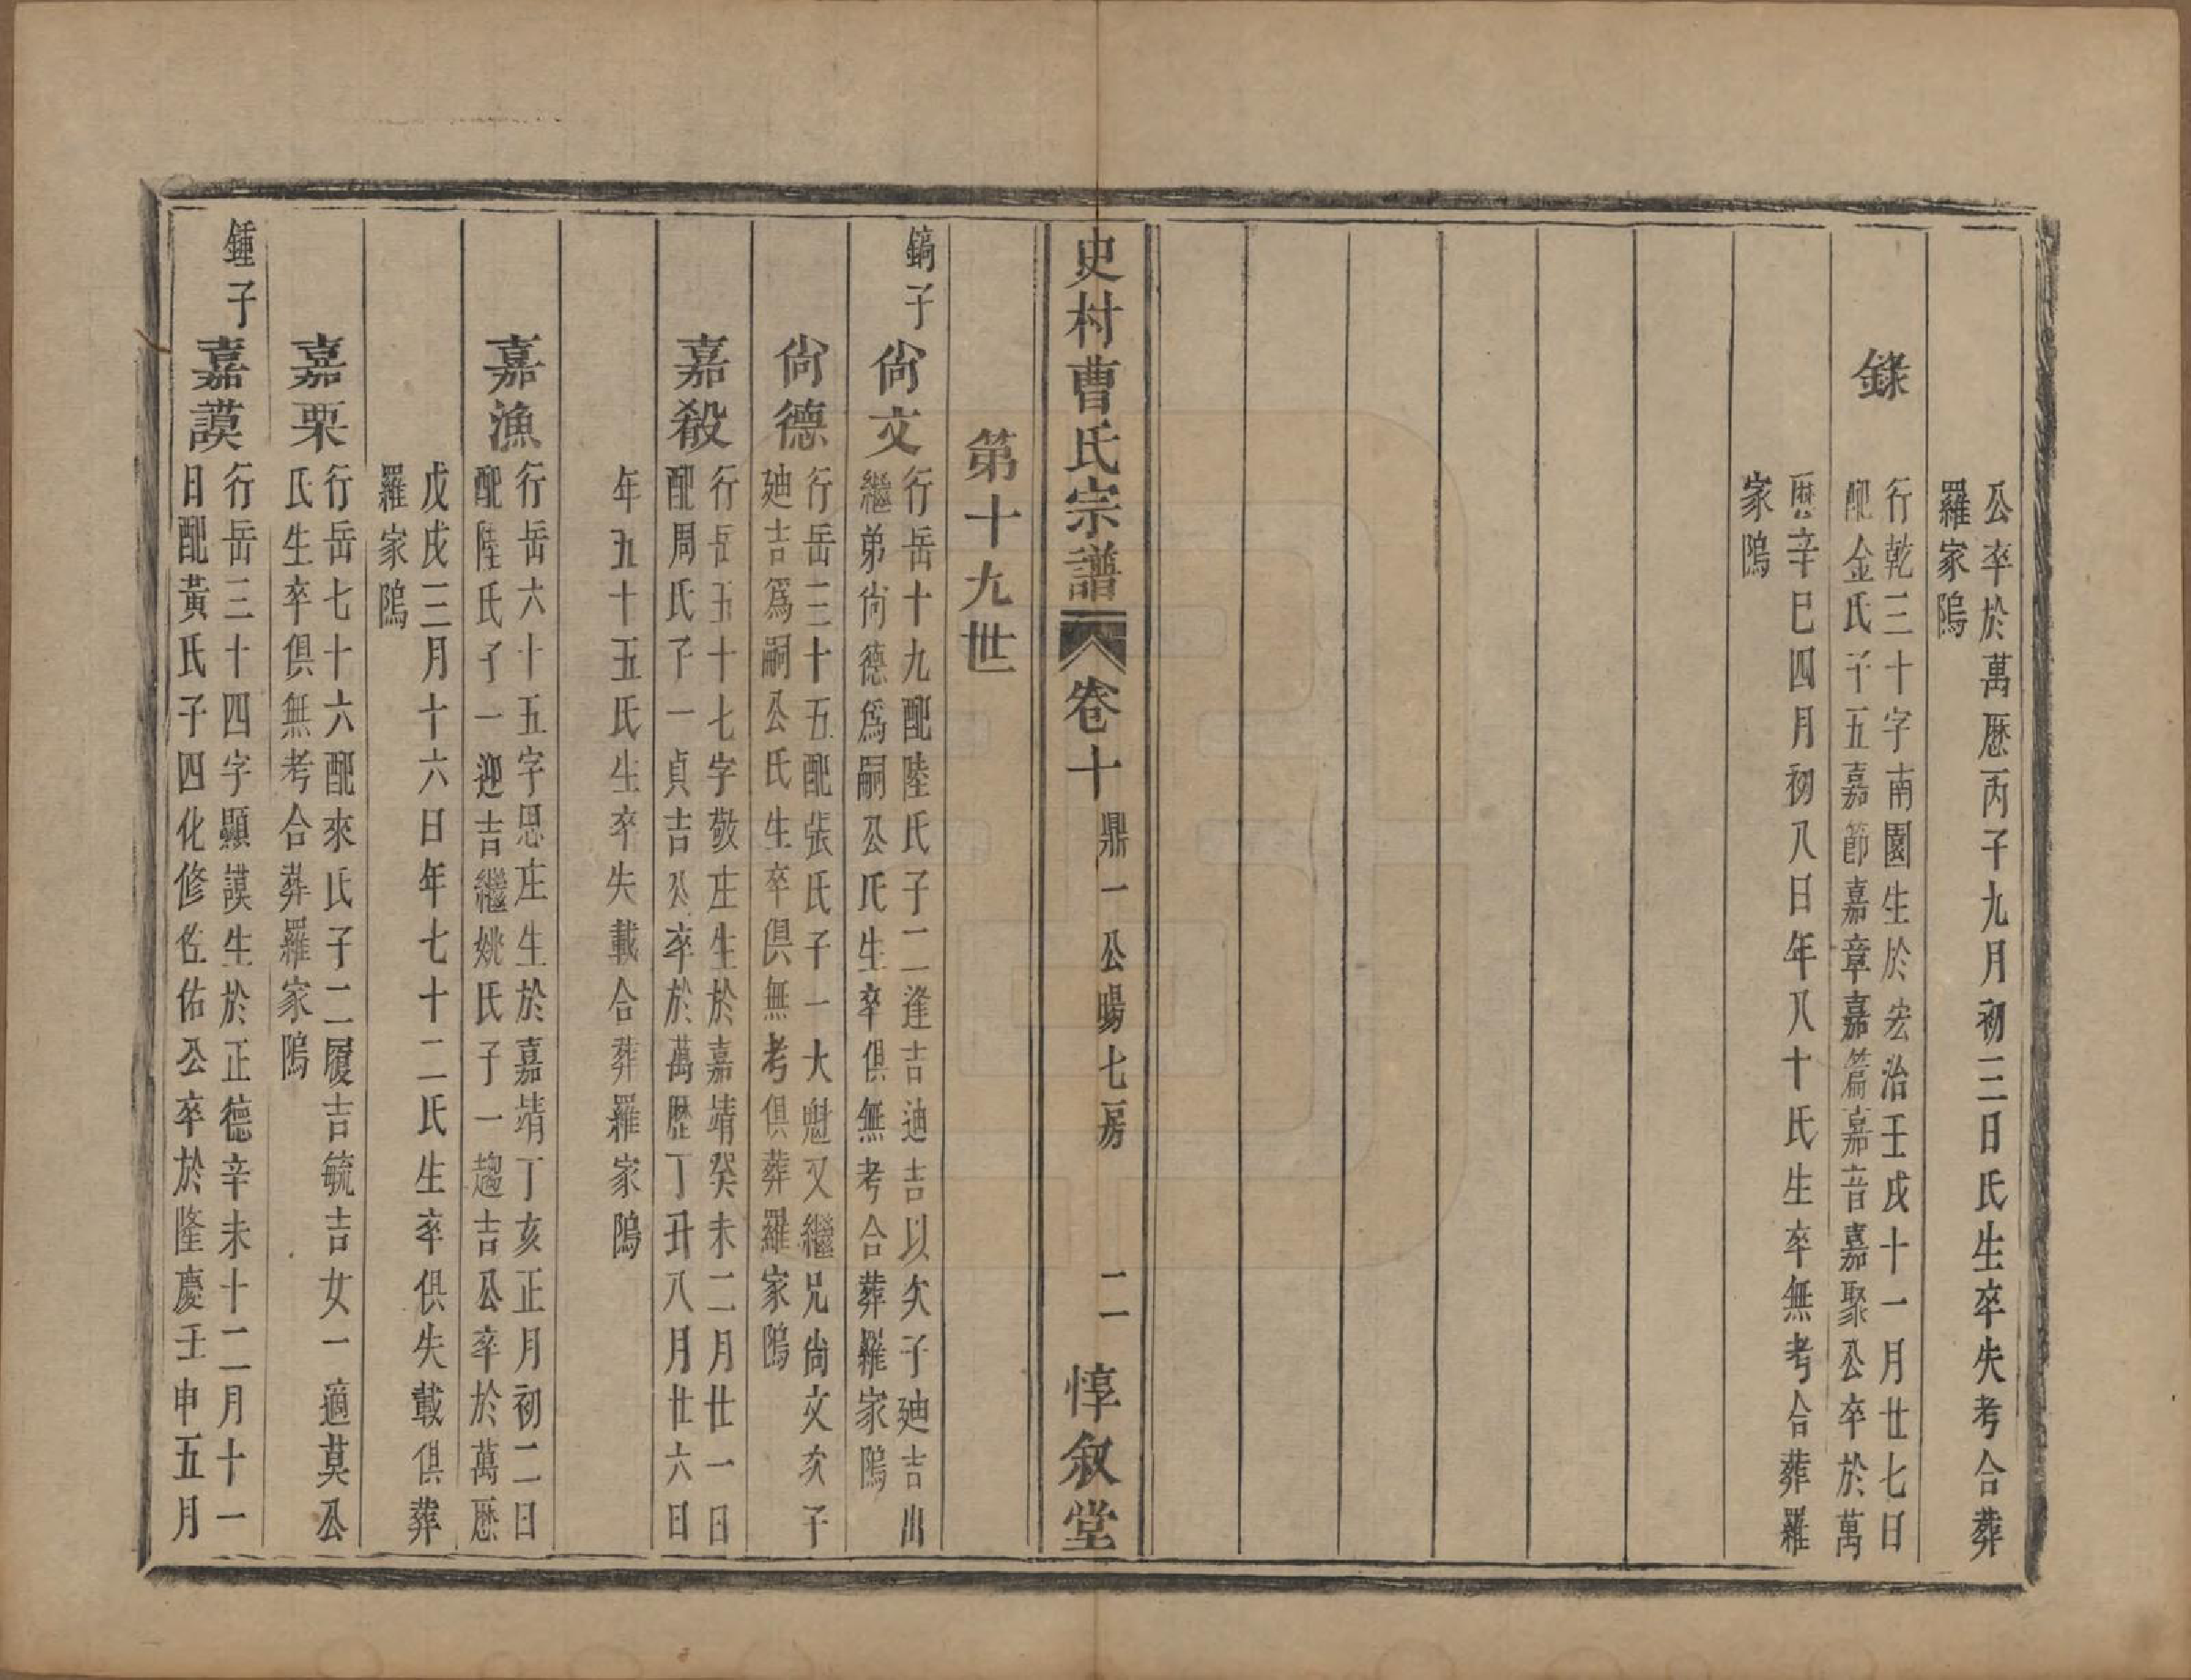 公卒於萬歷丙子九月初三日氏生卒失考合葬
羅家隖
錄
行乾三十字南園生於宏治壬戌十一月廿七日
配金氏子五嘉節嘉章嘉篇嘉音嘉聚公卒於萬
歷辛巳四月初八日年八十氏生卒無考合葬羅
家隖
史村曹氏宗譜
卷十
鼎一公暘七房
二
惇叙堂
第十九世
鎬子
尚文
行岳十九配陸氏子二逢吉迪吉以次子廸吉出
繼弟尚德為嗣公氏生卒俱無考合葬羅家隖
尚德
行岳三十五配張氏子一大魁又繼兄尚文次子
廸吉為嗣公氏生卒俱無考俱葬羅家隖
嘉殺
行岳五十七字敬庄生於嘉靖癸未二月廿一日
配周氏子一貞吉公卒於萬歷丁丑八月廿六日
年五十五氏生卒失載合葬羅家隖
嘉漁
行岳六十五字思庄生於嘉靖丁亥正月初二日
配陸氏子一迎吉繼姚氏子一趨吉公卒於萬歷
戊戌三月十六日年七十二氏生卒俱失載俱葬
羅家隖
嘉栗
行岳七十六配來氏子二履吉毓吉女一適莫公
氏生卒俱無考合葬羅家隖
鍾子
嘉謨
行岳三十四字顯謨生於正德辛未十二月十一
日配黃氏子四化修佐佑公卒於隆慶壬申五月